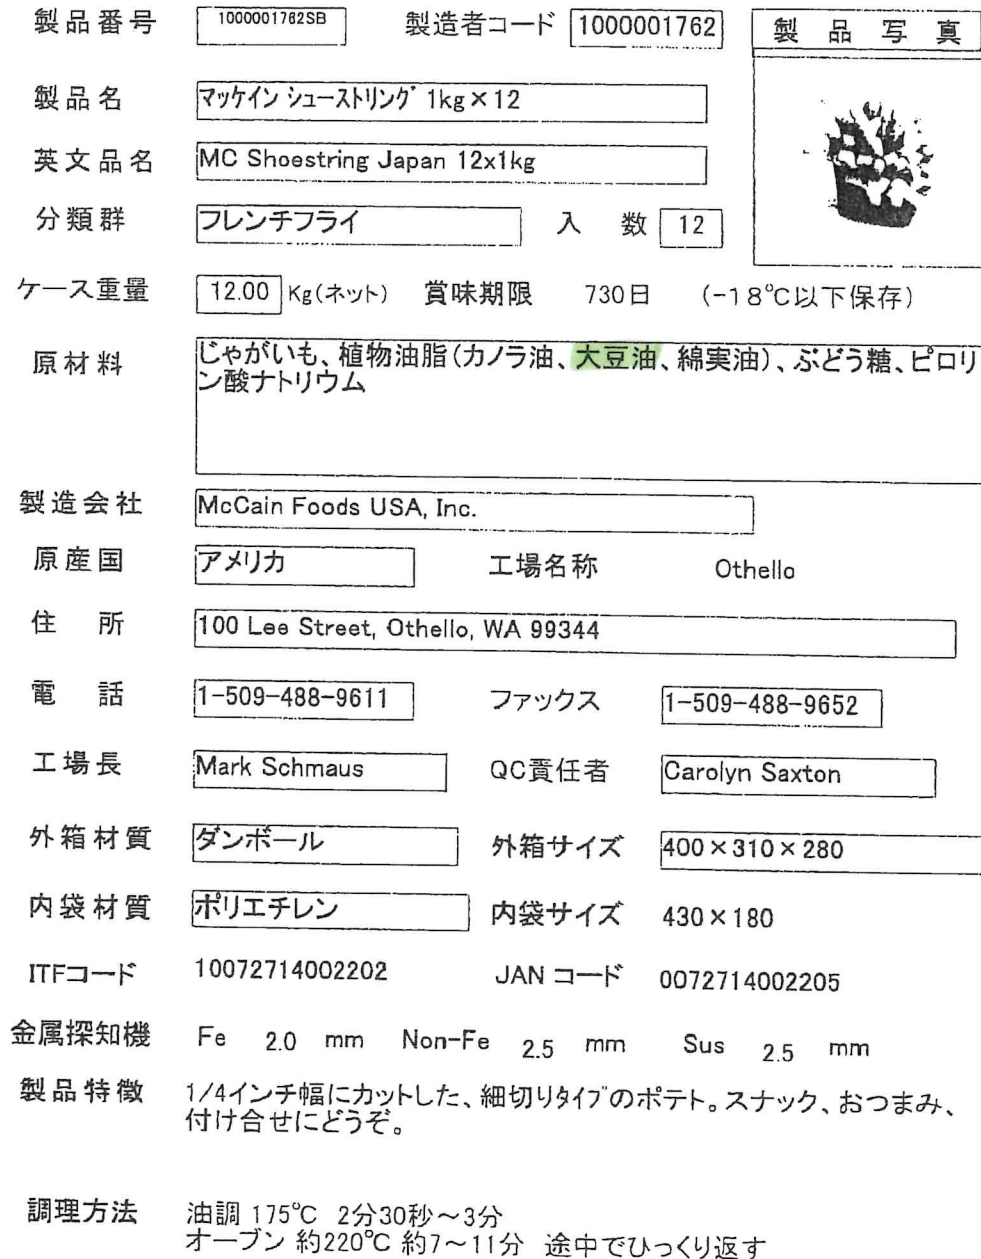 製品番号 1000001762SB 製造者コード 1000001762 製品写真
製品名 マッケイン シューストリング 1kg×12
英文品名 MC Shoestring Japan 12x1kg
分類群 フレンチフライ 入数 12
ケース重量 12.00 Kg(ネット) 賞味期限 730日 (-18℃以下保存)
原材料 じゃがいも、植物油脂(カノラ油、大豆油、綿実油)、ぶどう糖、ピロリ
ン酸ナトリウム
製造会社 McCain Foods USA, Inc.
原産国 アメリカ 工場名称 Othello
住所 100 Lee Street, Othello, WA 99344
電話 1-509-488-9611 ファックス 1-509-488-9652
工場長 Mark Schmaus QC責任者 Carolyn Saxton
外箱材質 ダンボール 外箱サイズ 400×310×280
内袋材質 ポリエチレン 内袋サイズ 430×180
ITFコード 10072714002202 JAN コード 0072714002205
金属探知機 Fe 2.0 mm Non-Fe 2.5 mm Sus 2.5 mm
製品特徴 1/4インチ幅にカットした、細切りタイプのポテト。スナック、おつまみ、
付け合せにどうぞ。
調理方法 油調 175℃ 2分30秒~3分
オーブン 約220℃ 約7~11分 途中でひっくり返す